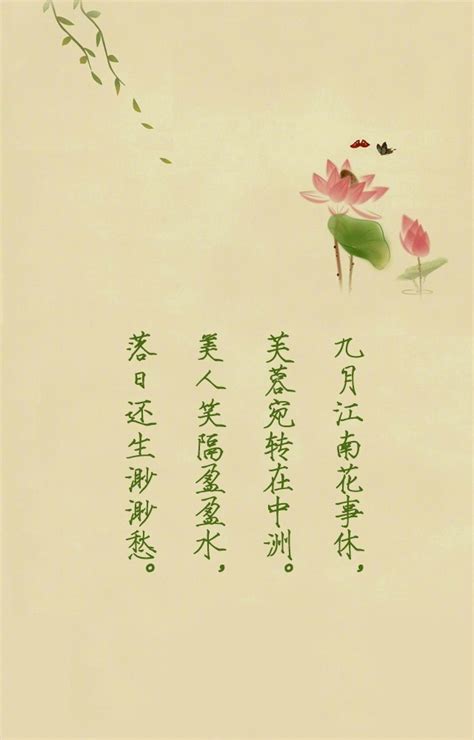 九月江南花事休，
芙蓉宛转在中洲。
美人笑隔盈盈水，
落日还生渺渺愁。